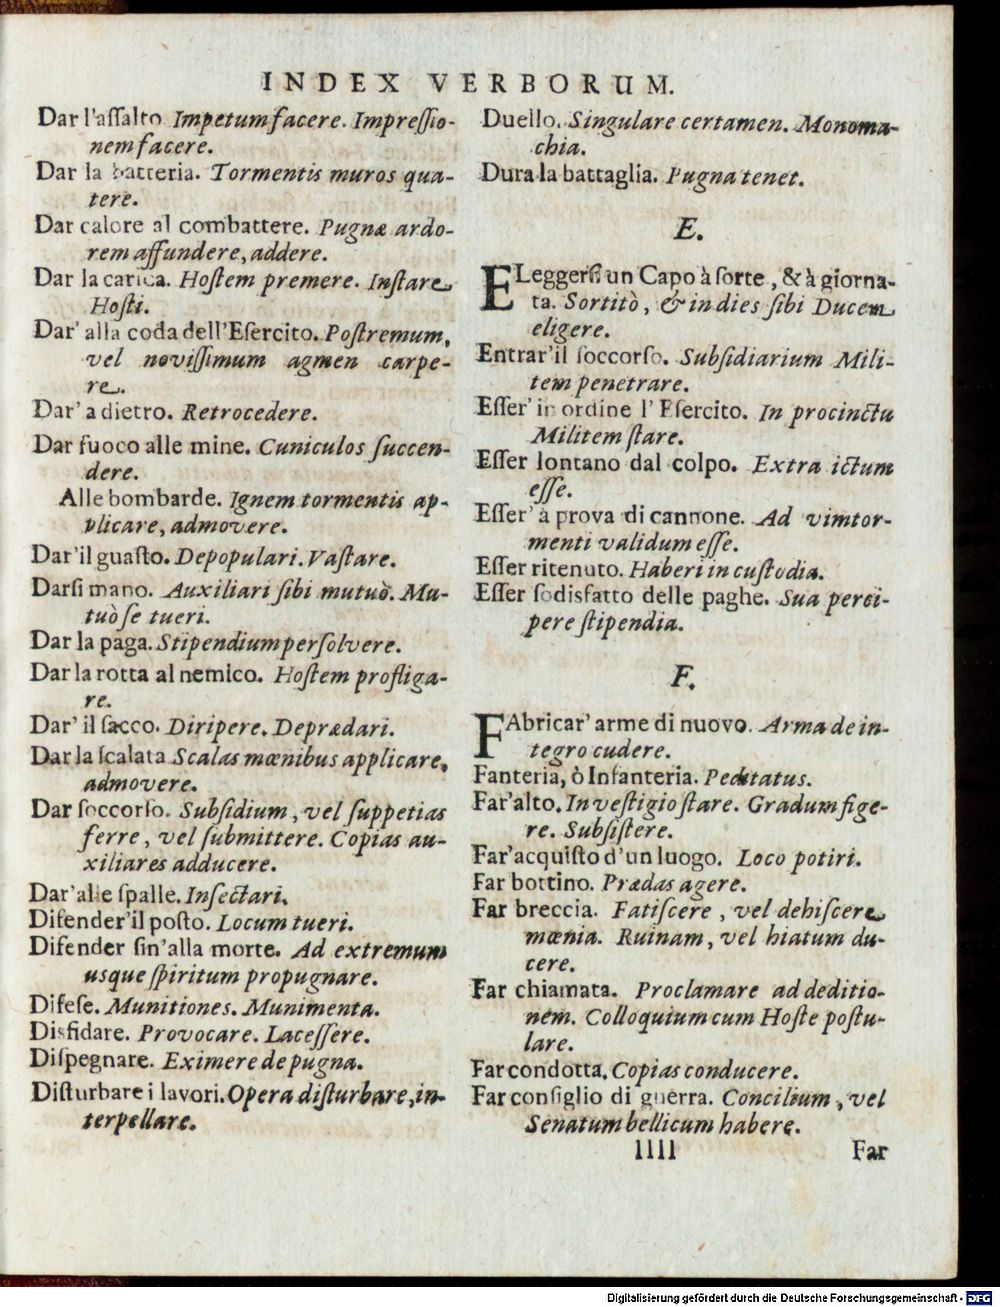 INDEX VERBORUM.
Dar l'aſſalto. Impetum facere. Impreſſio-
nem facere.
Dar la batteria. Tormentis muros qua-
tere.
Dar calore al combattere. Pugnæ ardo-
rem affundere, addere.
Dar la carica. Hoſtem premere. Inſtare
Hoſti.
Dar' alla coda dell'Eſercito. Poſtremum,
vel noviſſimum agmen carpe-
re.
Dar' a dietro. Retrocedere.
Dar fuoco alle mine. Cuniculos ſuccen-
dere.
Alle bombarde. Ignem tormentis ap-
plicare, admovere.
Dar'il guaſto. Depopulari. Vaſtare.
Darſi mano. Auxiliari ſibi mutuò. Mu-
tuò ſe tueri.
Dar la paga. Stipendium perſolvere.
Dar la rotta al nemico. Hoſtem profliga-
re.
Dar' il ſacco. Diripere. Deprædari.
Dar la ſcalata Scalas mœnibus applicare,
admovere.
Dar ſoccorſo. Subſidium, vel ſuppetias
ferre, vel ſubmittere. Copias au-
xiliares adducere.
Dar'alle ſpalle. Inſectari.
Difender'il poſto. Locum tueri.
Difender ſin'alla morte. Ad extremum
usque ſpiritum propugnare.
Difeſe. Munitiones. Munimenta.
Disfidare. Provocare. Laceſſere.
Diſpegnare. Eximere de pugna.
Diſturbare i lavori. Opera diſturbare, in-
terpellare.
Duello. Singulare certamen. Monoma-
chia.
Dura la battaglia. Pugna tenet.
E.
ELeggerſi un Capo à ſorte, & à giorna-
ta. Sortitò, & in dies ſibi Ducem
eligere.
Entrar'il ſoccorſo. Subſidiarium Mili-
tem penetrare.
Eſſer' in ordine l' Eſercito. In procinctu
Militem ſtare.
Eſſer lontano dal colpo. Extra ictum
eſſe.
Eſſer' à prova di cannone. Ad vim tor-
menti validum eſſe.
Eſſer ritenuto. Haberi in cuſtodia.
Eſſer ſodisfatto delle paghe. Sua perci-
pere ſtipendia.
F.
FAbricar' arme di nuovo. Arma de in-
tegro cudere.
Fanteria, ò Infanteria. Peditatus.
Far'alto. In veſtigio ſtare. Gradum fige-
re. Subſiſtere.
Far'acquiſto d'un luogo. Loco potiri.
Far bottino. Prædas agere.
Far breccia. Fatiſcere, vel dehiſcere
mœnia. Ruinam, vel hiatum du-
cere.
Far chiamata. Proclamare ad deditio-
nem. Colloquium cum Hoſte poſtu-
lare.
Far condotta. Copias conducere.
Far conſiglio di guerra. Concilium, vel
Senatum bellicum habere.
llll Far
Digitalisierung gefördert durch die Deutsche Forschungsgemeinschaft - DFG